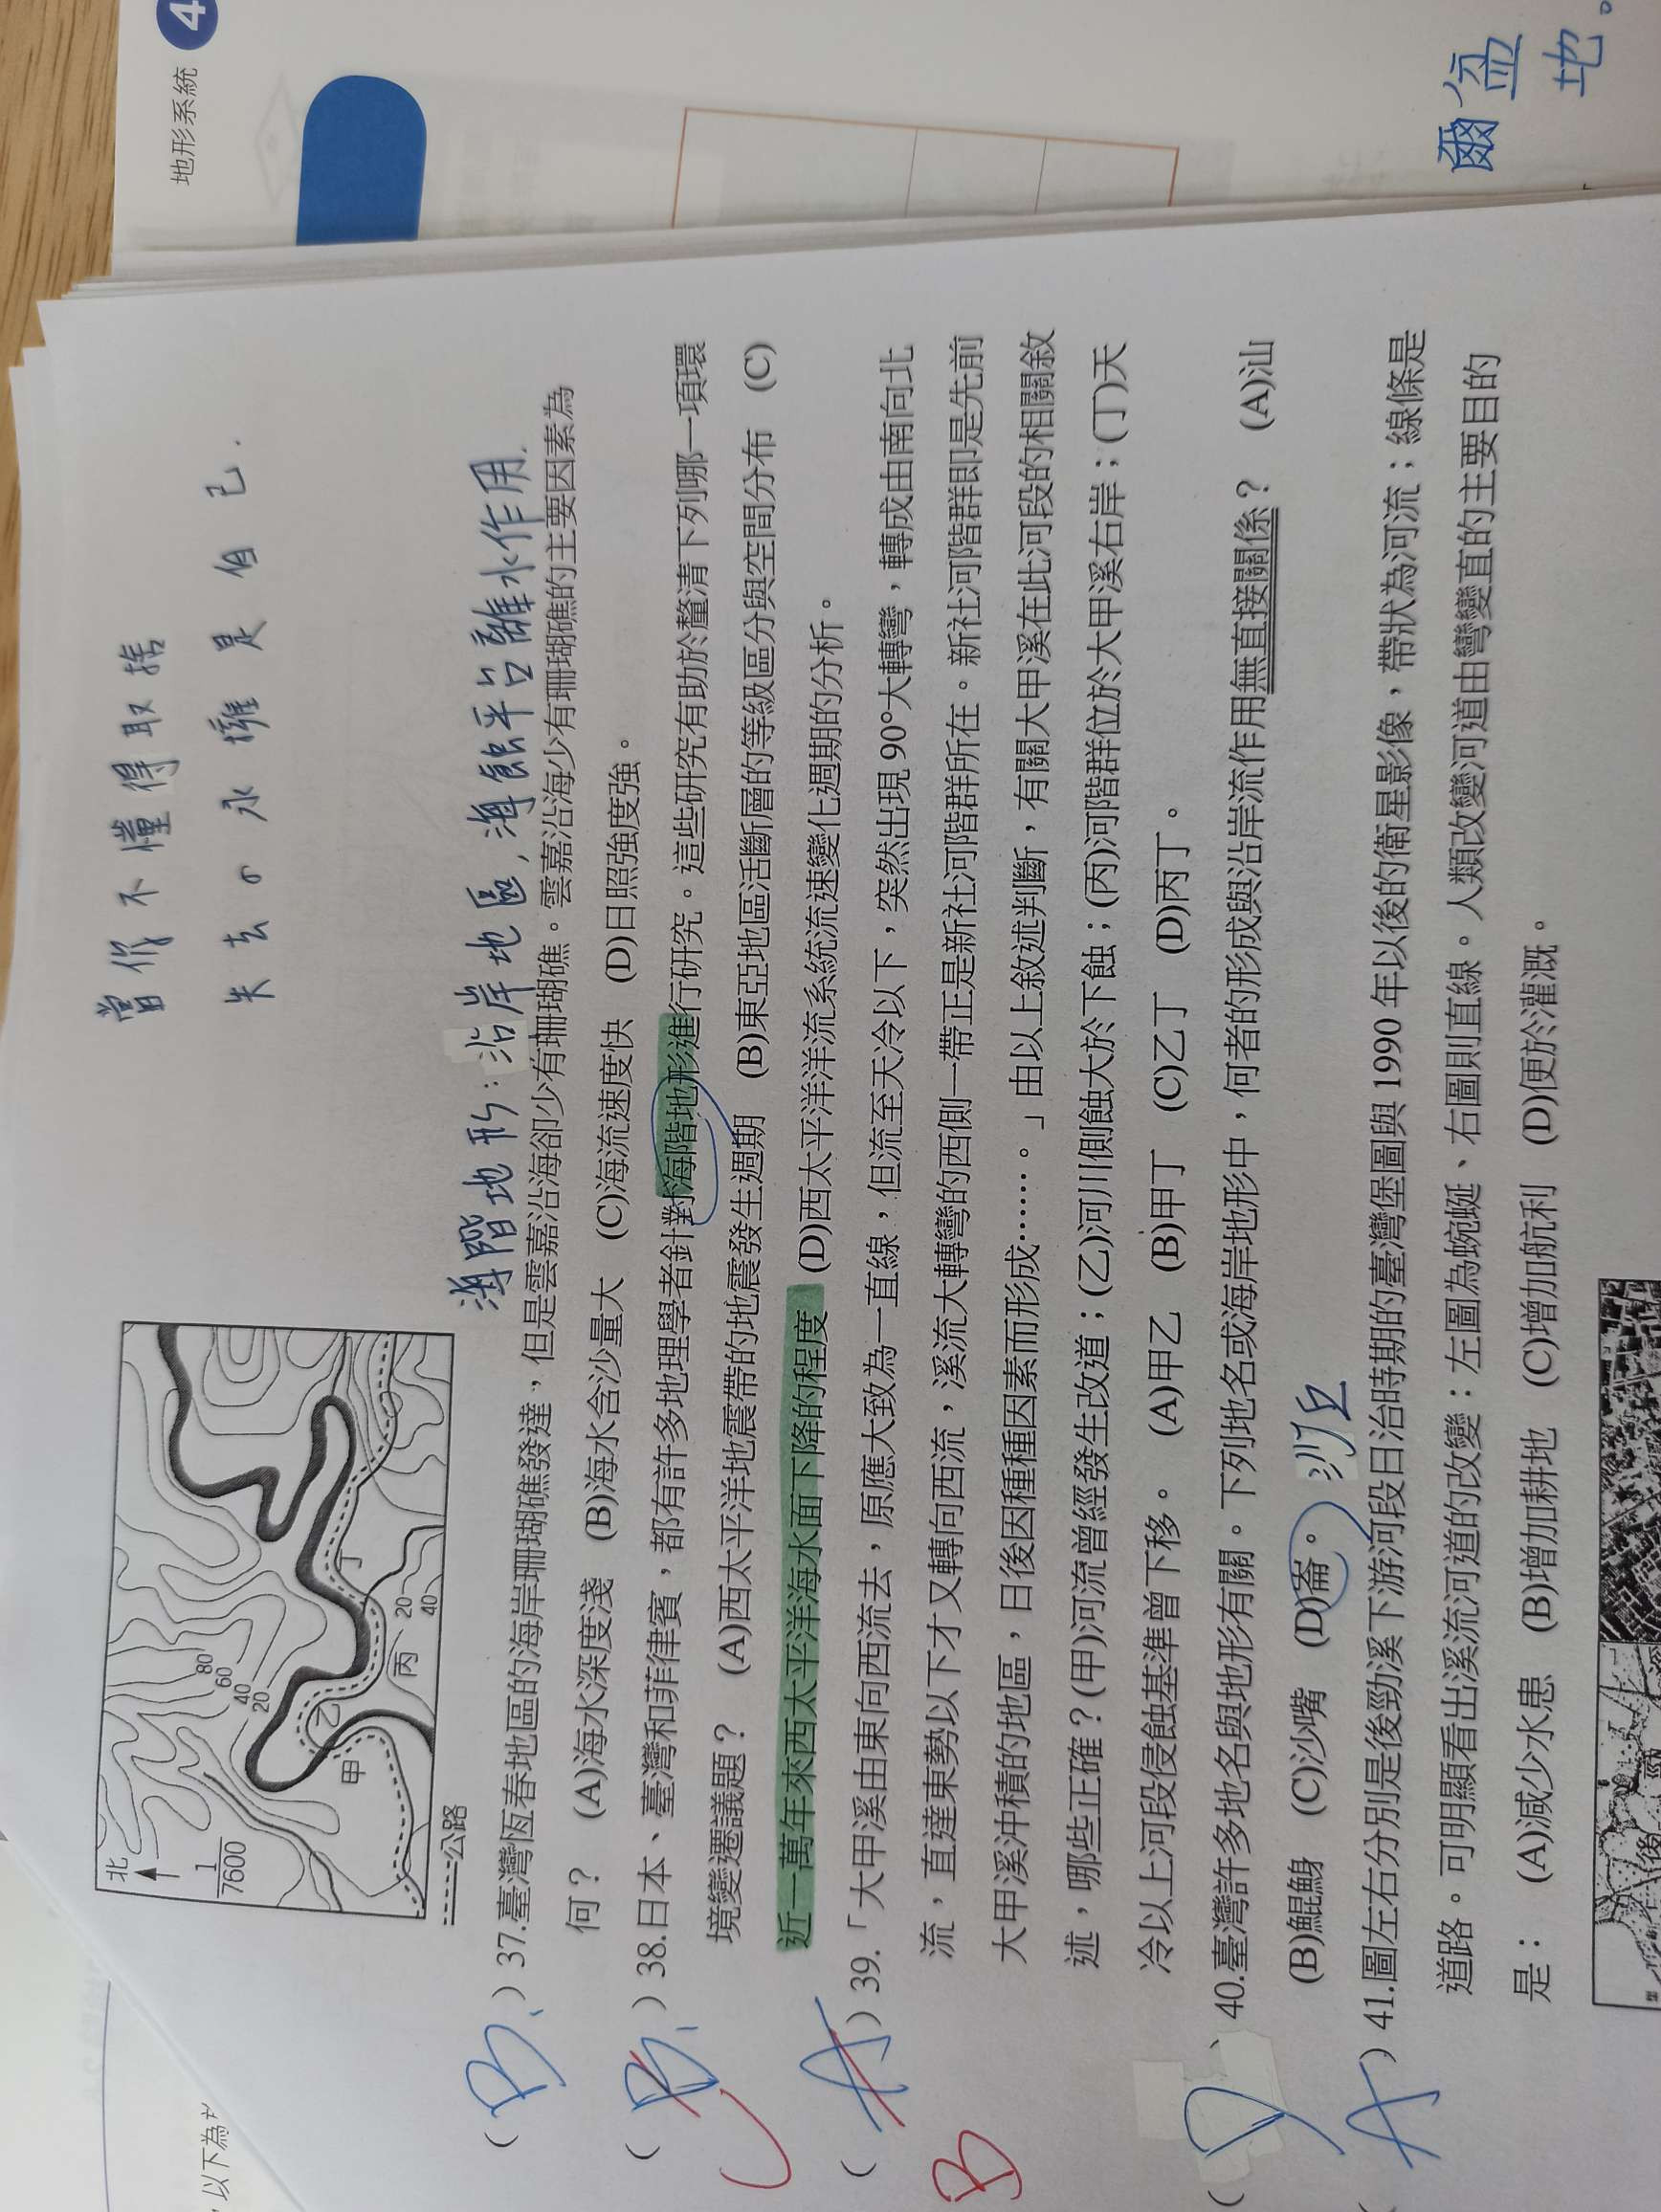 地形系統 4
爾盆地。
當作不懂得取捨
失去の永擁是自己.
北
1
7600
80
60
40
20
20
40
甲
乙
丙
丁
公路
海階地形:沿岸地區,海蝕平台離水作用.
(B.)37.臺灣恆春地區的海岸珊瑚礁發達,但是雲嘉沿海卻少有珊瑚礁。雲嘉沿海少有珊瑚礁的主要因素為
何? (A)海水深度淺 (B)海水含沙量大 (C)海流速度快 (D)日照強度強。
(B.)38.日本、臺灣和菲律賓,都有許多地理學者針對海階地形進行研究。這些研究有助於釐清下列哪一項環
C
境變遷議題? (A)西太平洋地震帶的地震發生週期 (B)東亞地區活斷層的等級區分與空間分布 (C)
近一萬年來西太平洋海水面下降的程度 (D)西太平洋洋流系統流速變化週期的分析。
(A)39.「大甲溪由東向西流去,原應大致為一直線,但流至天冷以下,突然出現90°大轉彎,轉成由南向北
B
流,直達東勢以下才又轉向西流,溪流大轉彎的西側一帶正是新社河階群所在。新社河階群即是先前
大甲溪沖積的地區,日後因種種因素而形成……。」由以上敘述判斷,有關大甲溪在此河段的相關敘
述,哪些正確?(甲)河流曾經發生改道;(乙)河川側蝕大於下蝕;(丙)河階群位於大甲溪右岸;(丁)天
冷以上河段侵蝕基準曾下移。 (A)甲乙 (B)甲丁 (C)乙丁 (D)丙丁。
(D)40.臺灣許多地名與地形有關。下列地名或海岸地形中,何者的形成與沿岸流作用無直接關係? (A)汕
(B)鯤鯓 (C)沙嘴 (D)崙。 沙丘
(A)41.圖左右分別是後勁溪下游河段日治時期的臺灣堡圖與1990年以後的衛星影像,帶狀為河流;線條是
道路。可明顯看出溪流河道的改變:左圖為蜿蜒、右圖則直線。人類改變河道由彎變直的主要目的
是: (A)減少水患 (B)增加耕地 (C)增加航利 (D)便於灌溉。
後
以下為